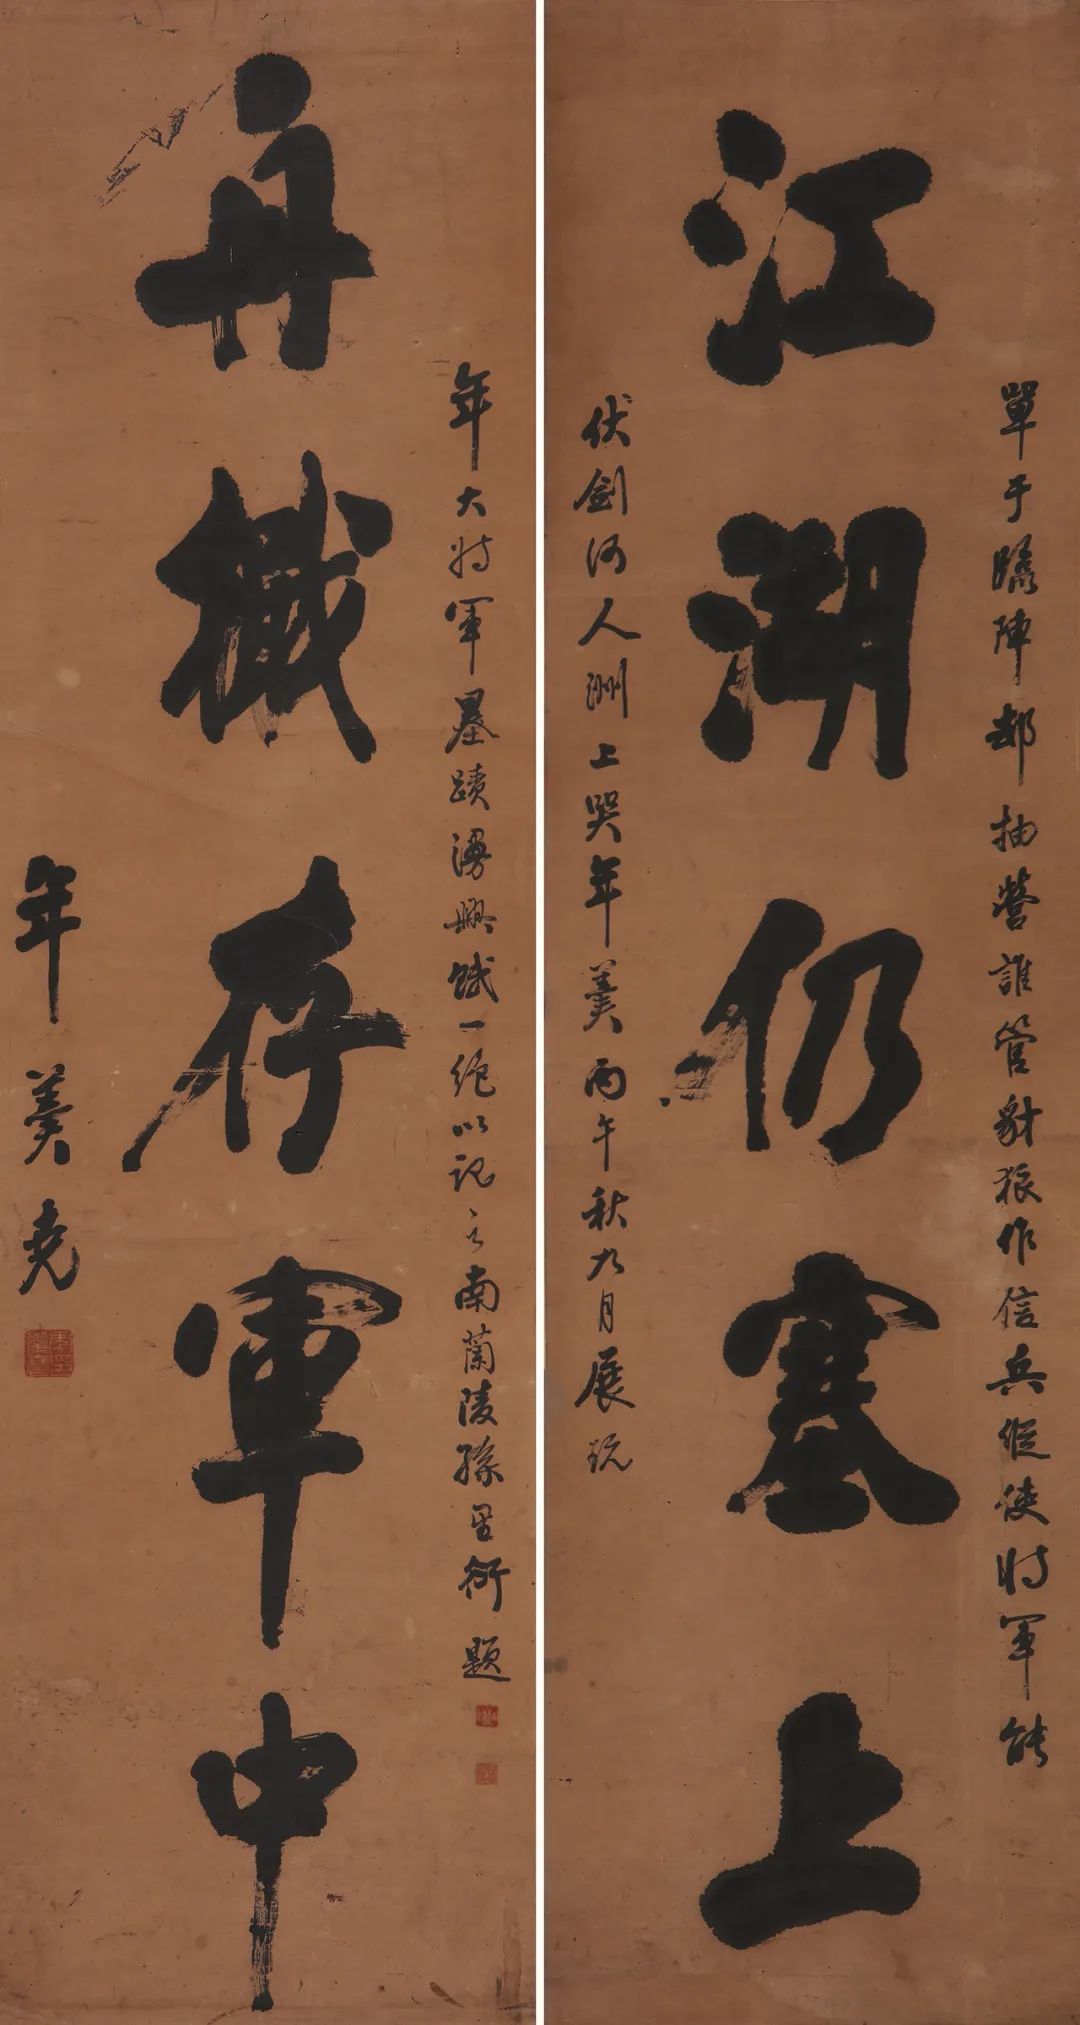 江湖仍塞上
單于臨陣却抽營誰管豺狼作信兵縱使將軍能
伏劍何人湖上哭年羹丙午秋九月展玩
舟檝存軍中
年大將軍墨蹟漫興賦一絕以記之南蘭陵孫星衍題
年羹堯